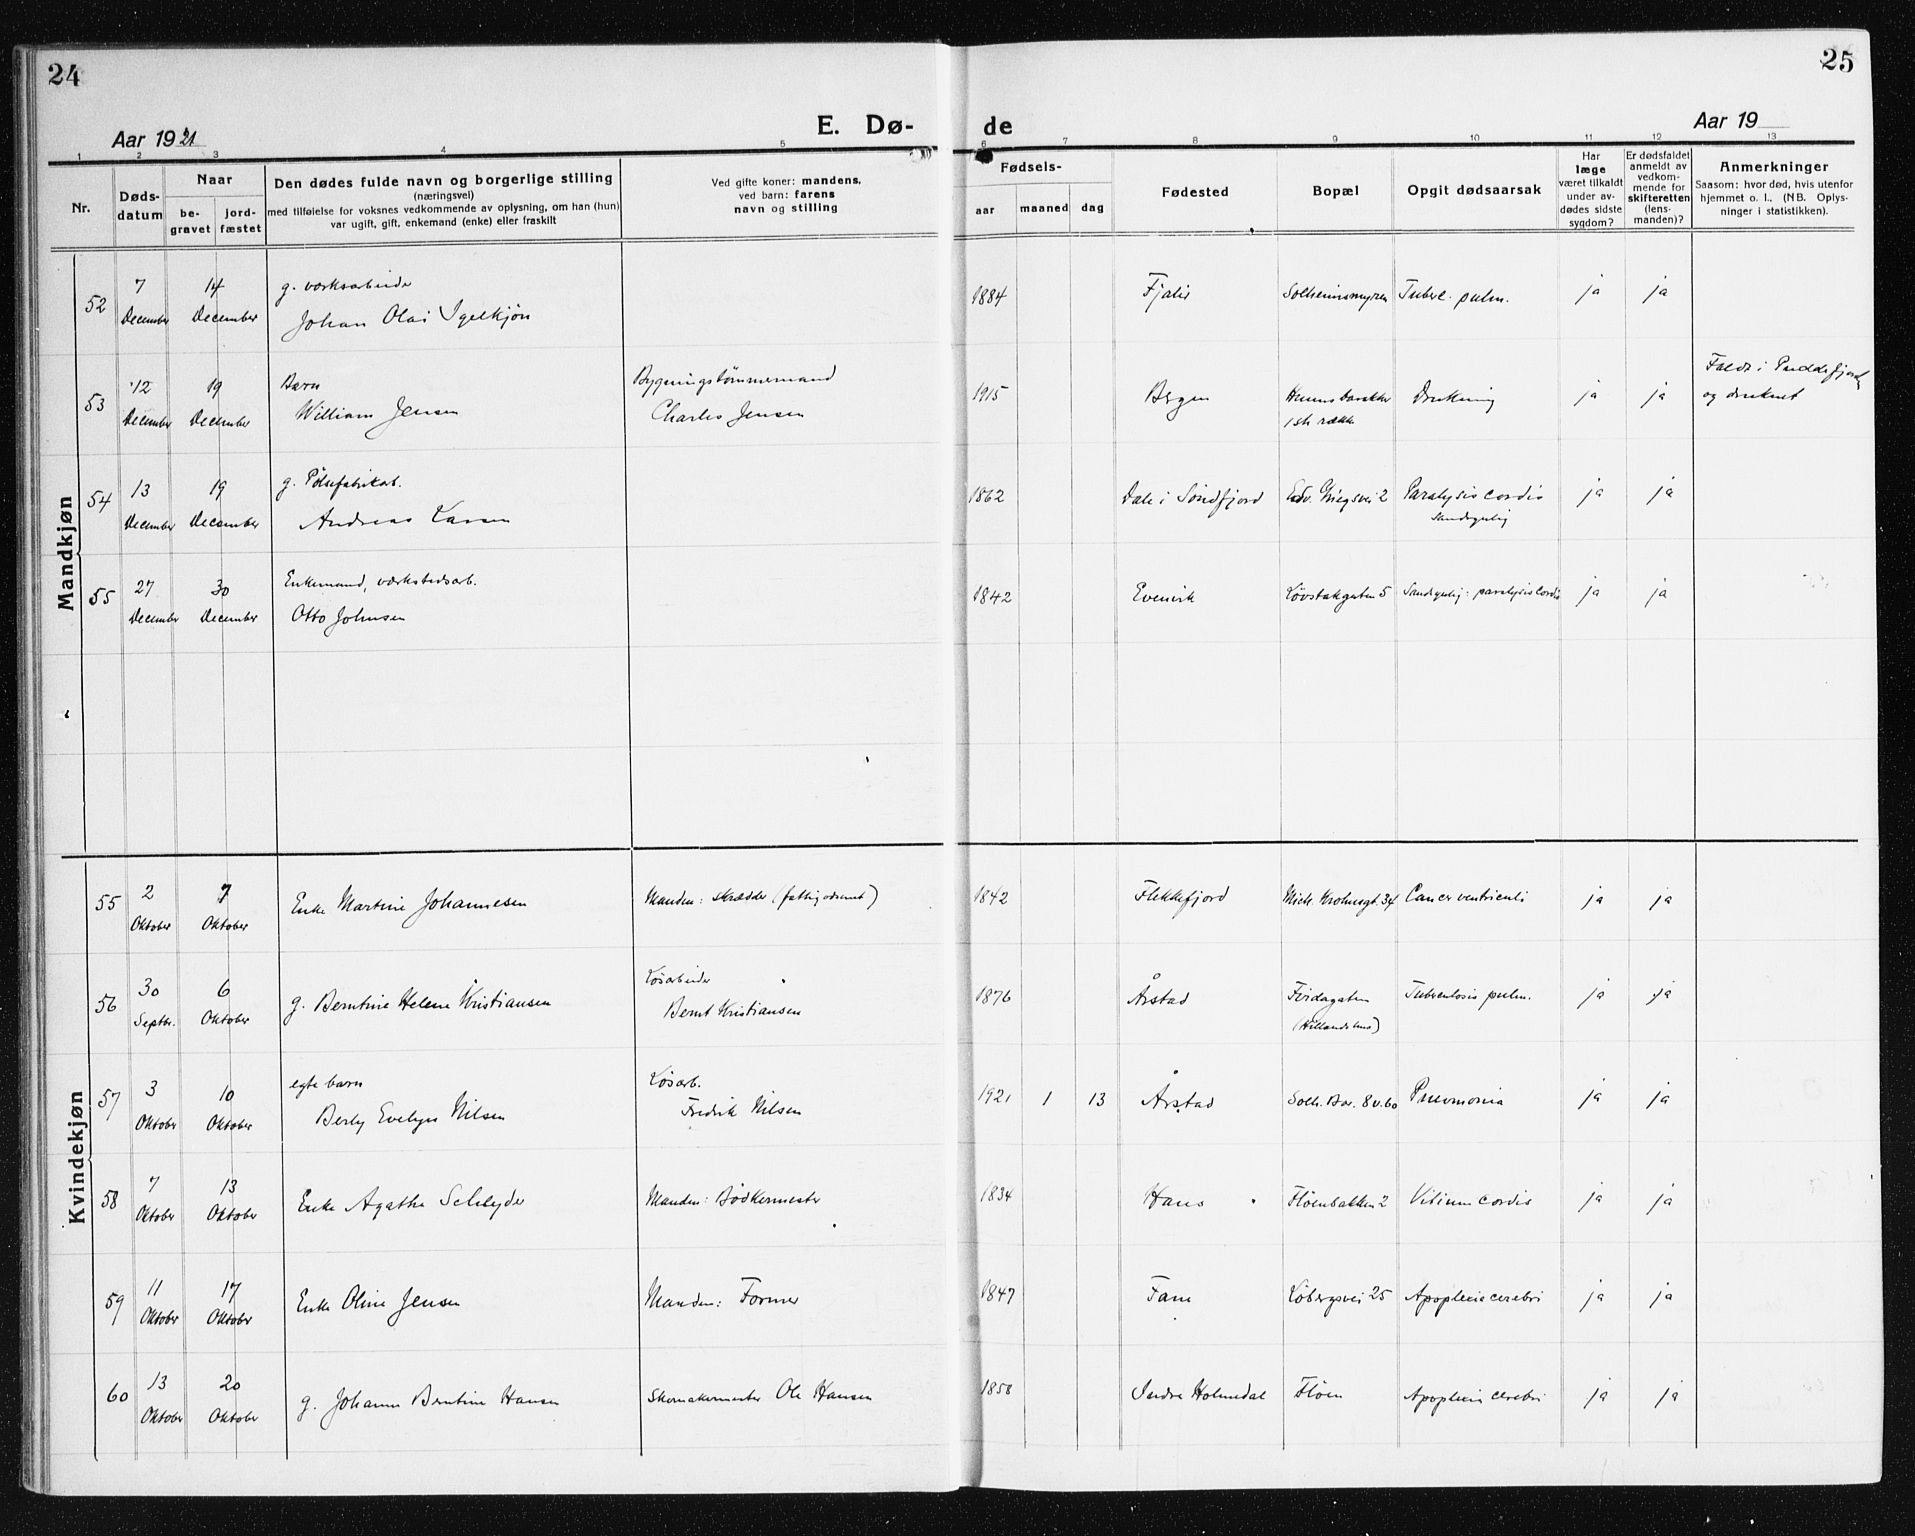 24
25
Aar 1921
E. Dø-
de
Aar 19
1 2 3 4 5 6 7 8 9 10 11 12 13
Nr.
Døds-
datum
Naar
be-
gravet
jord-
fæstet
Den dødes fulde navn og borgerlige stilling
(næringsvei)
med tilføielse for voksnes vedkommende av oplysning, om han (hun)
var ugift, gift, enkemand (enke) eller fraskilt
Ved gifte koner: mandens,
ved barn: farens
navn og stilling
Fødsels-
aar maaned dag
Fødested
Bopæl
Opgit dødsaarsak
Har
læge
været tilkaldt
under av-
dødes sidste
sygdom?
Er dødsfaldet
anmeldt av
vedkom-
mende for
skifteretten
(lens-
manden)?
Anmerkninger
Saasom: hvor død, hvis utenfor
hjemmet o. l., (NB. Oplys-
ninger i statistikken).
Mandkjøn
52 7 December 14 December g. verksarbeider
Johan Olai Igelkjøn 1884 Fjaler Solheimsmyren Tuberc. pulm. ja ja
53 12 December 19 December Barn
William Jensen
Bygningstømmermand
Charles Jensen 1915 Bergen
1ste række
Drukning ja ja
Faldt i Puddefjorden
og druknet
54 13 December 19 December g. Pølsefabrikarb.
Andreas Larsen 1862 Dale i Søndfjord Edv. Griegsvei 2 Paralysis cordis
Sandsynlig
ja ja
55 27 December 30 December Enkemand, værkstedsarb.
Otto Johnsen 1842 Evenvik Løvstakgaten 5 Sandsynlig: paralysis cordis ja ja
Kvindekjøn
55 2 Oktober 7 Oktober Enke Martine Johannesen Manden: skrædder (fattigodsemet) 1842 Flekkefjord Mich. Krohnsgt. 34 Cancer ventriculi ja ja
56 30 Septbr. 6 Oktober g. Berntine Helene Kristiansen
Løsarbeider
Bernt Kristiansen 1876 Årstad Fjordagaten
Tuberculosis pulm. ja ja
57 3 Oktober 10 Oktober egte barn
Berly Evelyn Nilsen
Løsarb.
Fredrik Nilsen 1921 1 13 Årstad Solh. Bar. 8 v. 60 Pneumonia ja ja
58 7 Oktober 13 Oktober Enke Agathe Schleyder Manden: Bødkermester 1834 Haus Fløenbakken 2 Vitium cordis ja ja
59 11 Oktober 17 Oktober Enke Oline Jensen Manden: Former 1847 Fane Løbergsvei 25 Apoplexia cerebri ja ja
60 13 Oktober 20 Oktober g. Johanne Berntine Hansen Skomakermester Ole Hansen 1858 Indre Holmedal Fløen Apoplexia cerebri ja ja